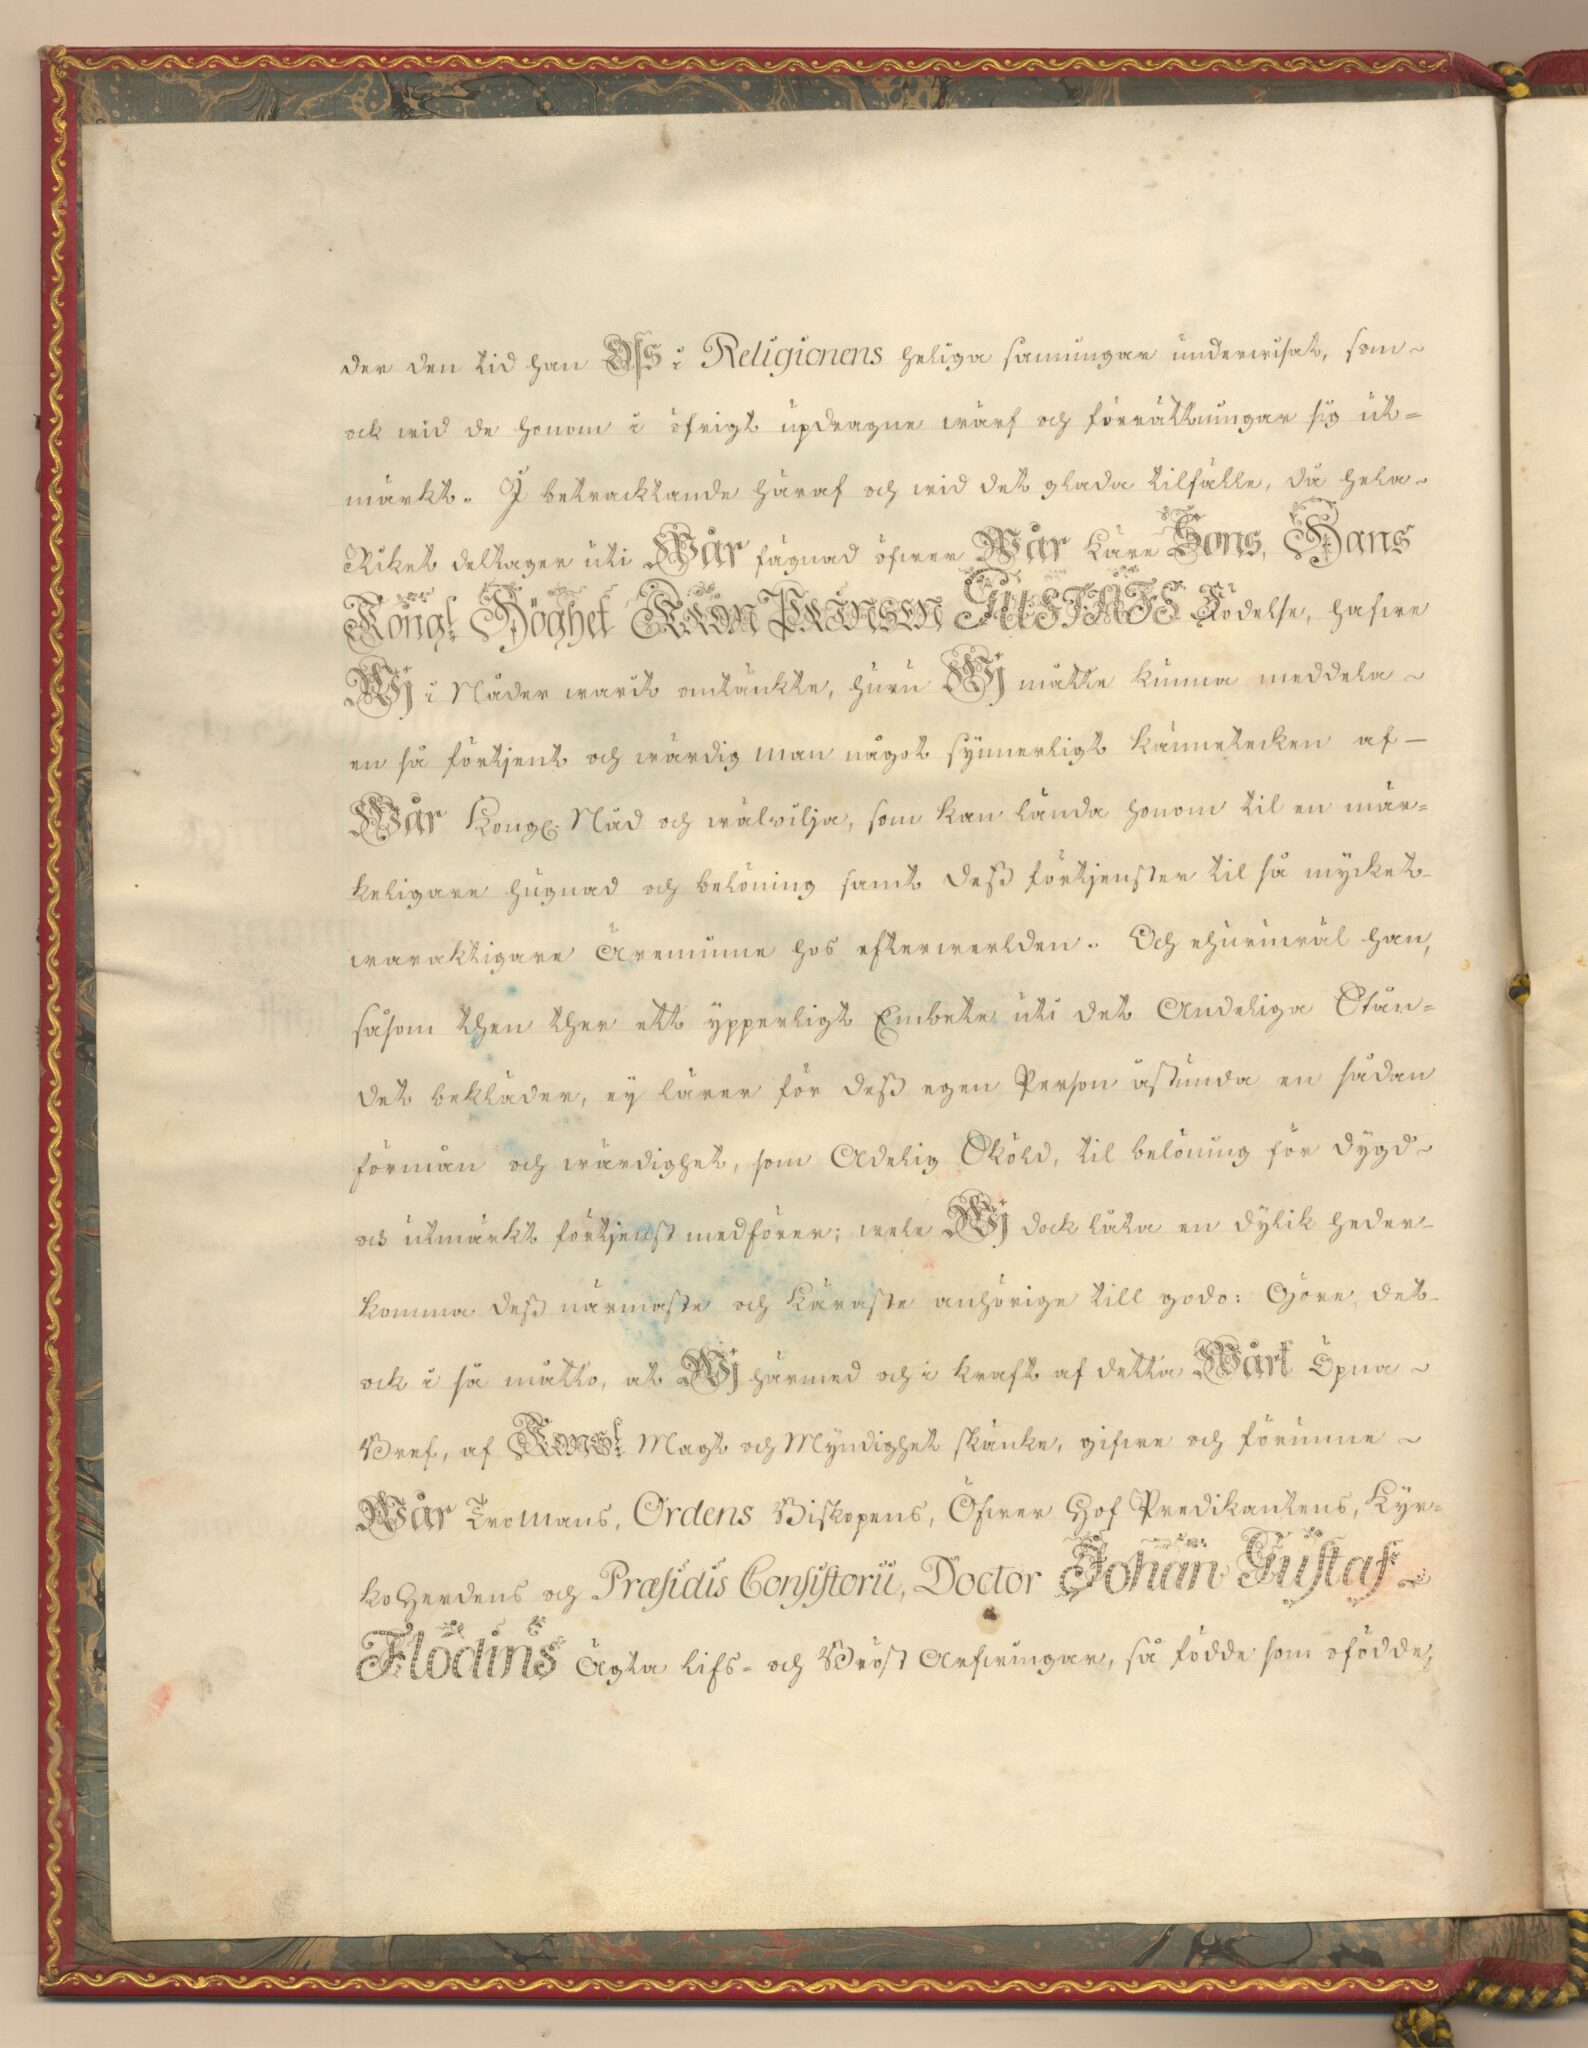 der den tid han Oss i Religionens heliga sanningar underwisat, som
ock wid de honom i öfrigt updragne wärf och förrättningar sig ut=
märkt. I betracktande häraf och wid det glada tilfälle, då hela
Riket deltager uti Wår fägnad öfwer Wår Käre Sons, Hans
Kongl. Höghet KRON PRINSEN GUSTAFS Födelse, hafwe
Wj i Nåder warit omtänkte, huru Wj måtte kunna meddela
en så förtjent och wärdig man något synnerligt kännetecken af
Wår Kongl. Nåd och wälwilja, som kan lända honom til en mär=
keligare hugnad och belöning samt dess förtjenster til så mycket
waraktigare Äreminne hos efterwerlden. Och ehuruwäl han,
såsom then ther ett ypperligt Embete uti det Andeliga Stån=
det bekläder, ey lärer för dess egen Person åstunda en sådan
förmån och wärdighet, som Adelig Sköld, til belöning för dygd
och utmärkt förtjenst medförer; wele Wj dock låta en dylik heder
komma dess närmaste och Käraste anhörige till godo: Göre det
ock i så måtto, at Wj härmed och i kraft af detta Wårt Öpna
Bref, af Kongl. Magt och Myndighet skänke, gifwe och förunne
Wår Tromans, Ordens Biskopens, Öfwer Hof Predikantens, Kyr=
koHerdens och Præsidis Consistorii, Doctor Johan Gustaf
Flodins Ägta lifs= och Bröst Arfwingar, så födde som ofödde,